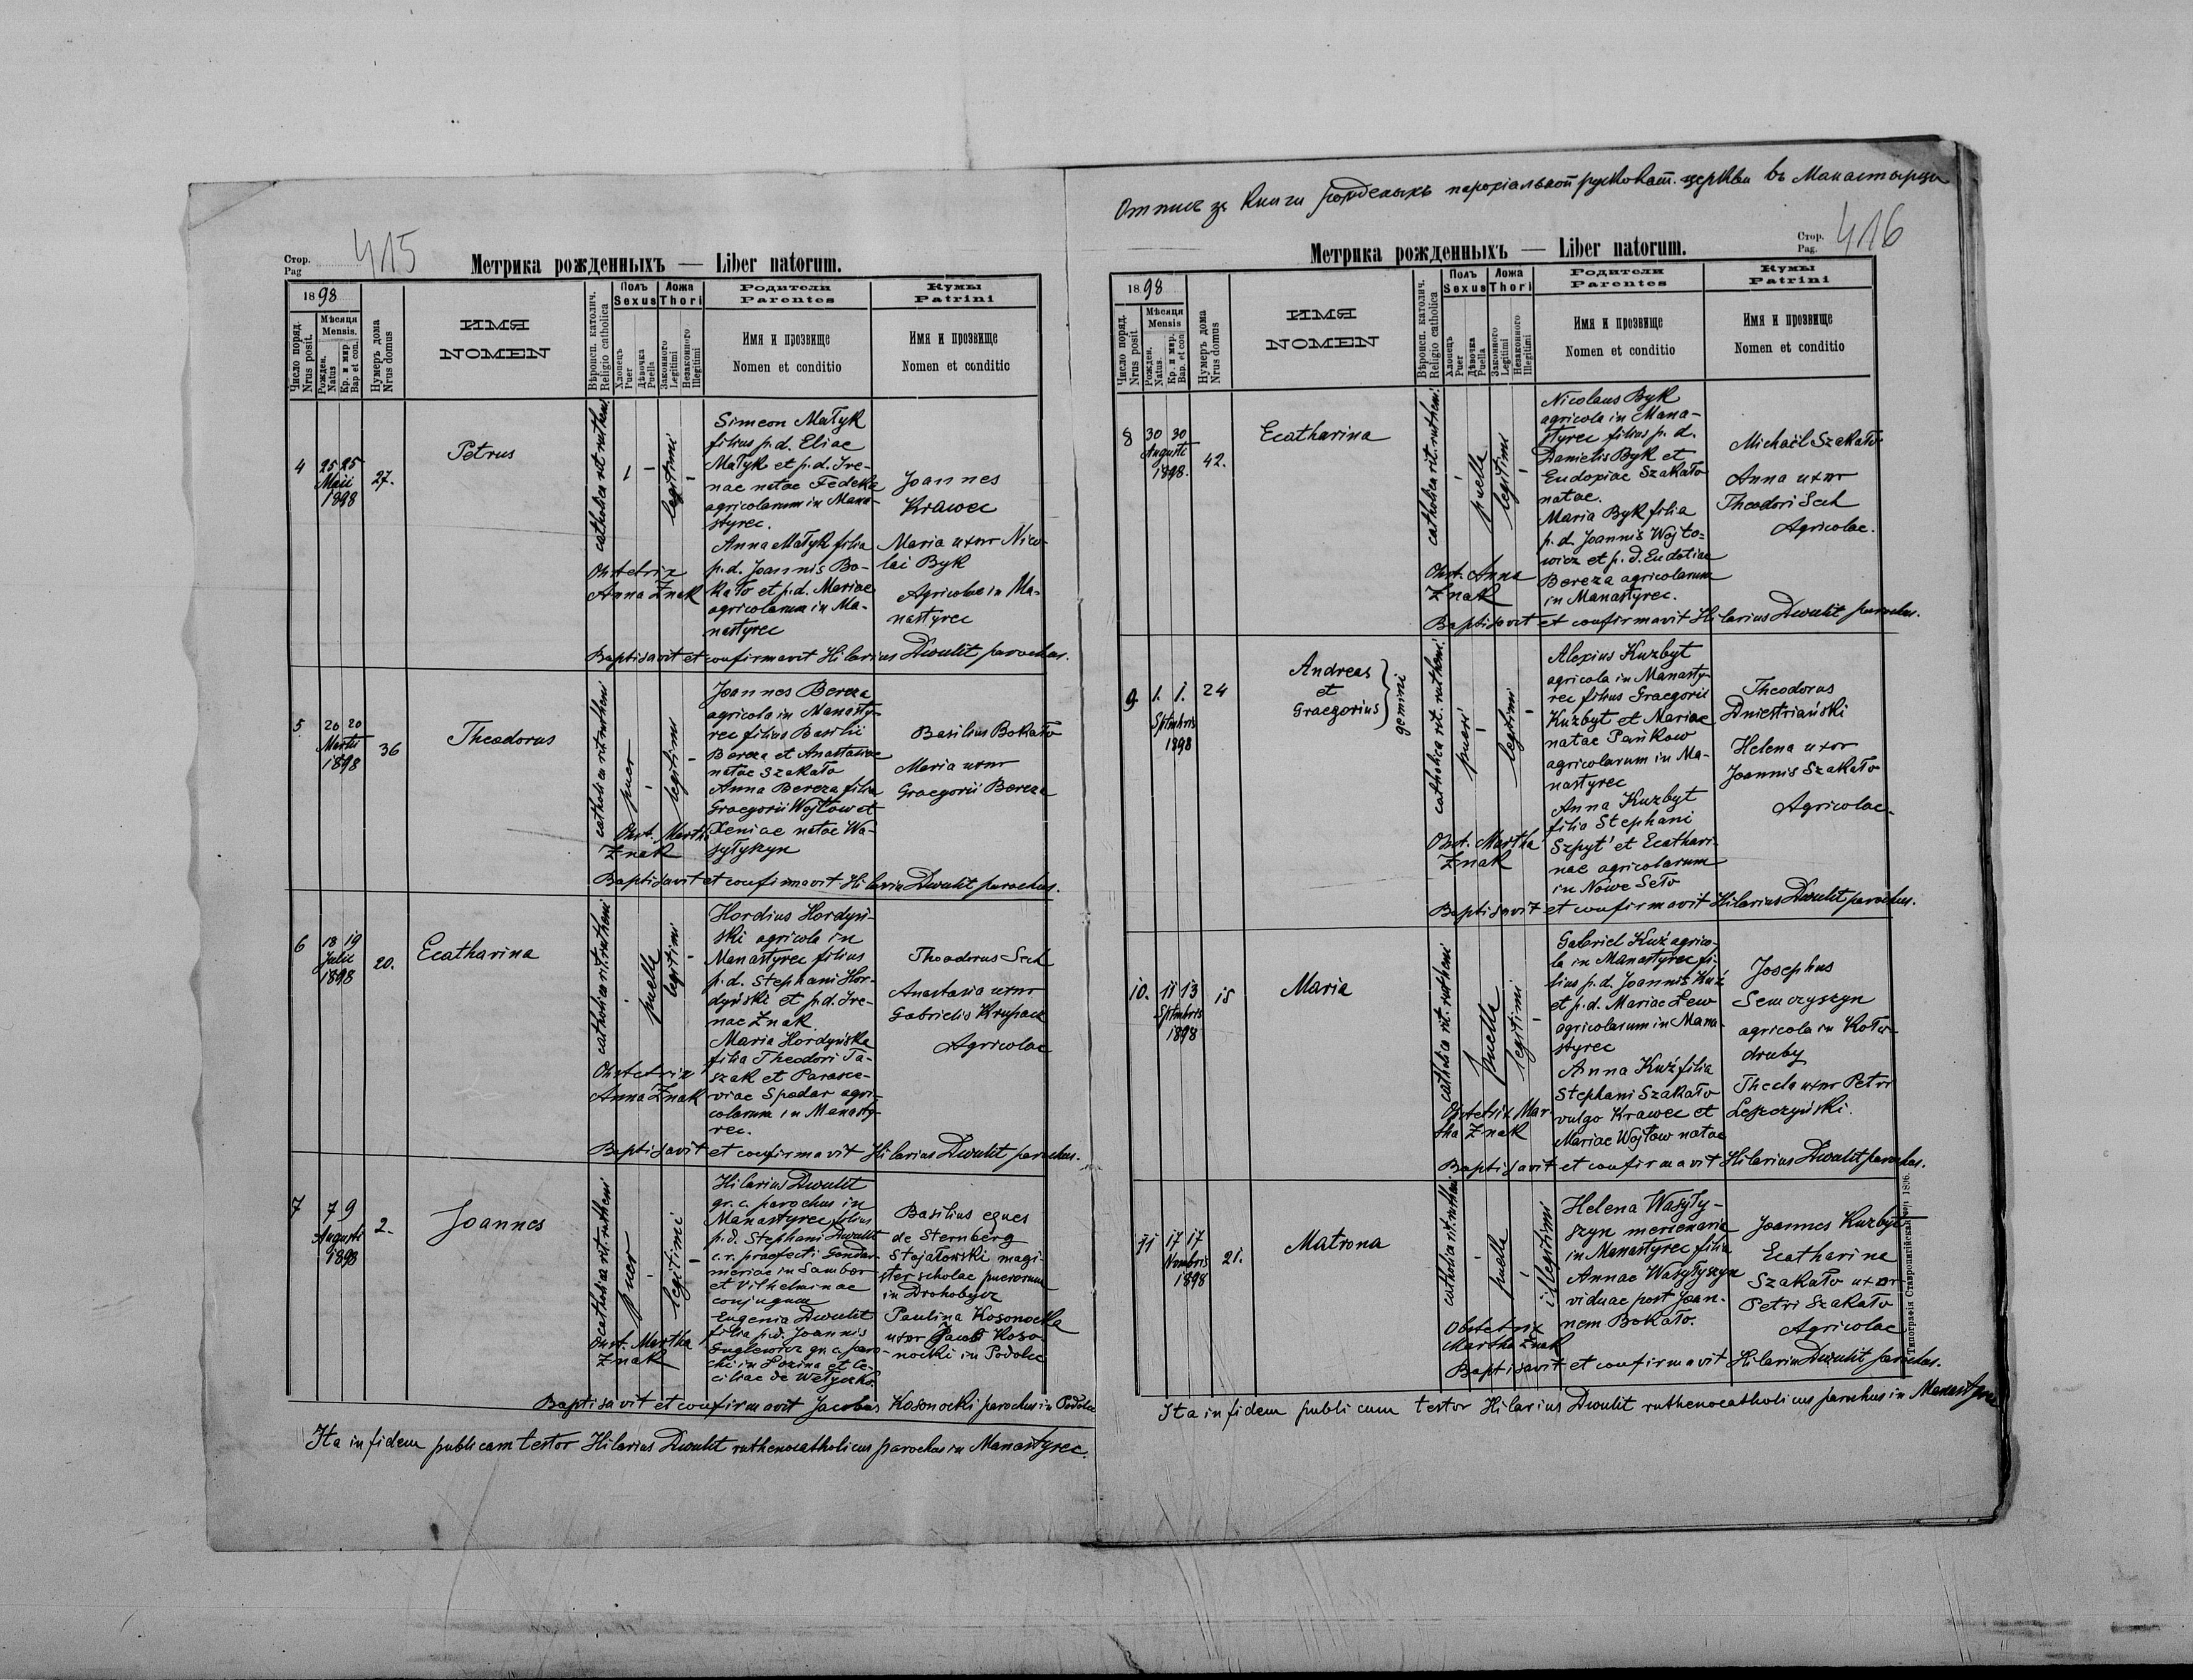 415
Стор.
Pag
Метрика рожденныхъ — Liber natorum.
1898
Число поряд.
Nrus posit.
Мѣсяця
Mensis.
Рожден.
Natus
Кр. и мир.
Bap et con.
Нумеръ дома
Nrus domus
ИМЯ
NOMEN
Вѣроисп. католич.
Religio catholica
Полъ
Sexus
Хлопецъ
Puer
Дѣвочка
Puella
Ложа
Thori
Законного
Legitimi
Незаконного
Illegitimi
Родители
Parentes
Имя и прозвище
Nomen et conditio
Кумы
Patrini
Имя и прозвище
Nomen et conditio
4
25 25
Maii
1898
27.
Petrus
catholica rit. ruthen.
1 -
legitimi
Obstetrix
Anna Żnak
Simeon Małyk
filius p.d. Eliae
Małyk et p.d. Ire-
nae natae Fedeka
agricolarum in Mana-
styrec.
Anna Małyk filia
p.d. Joannis Bo-
kało et p.d. Mariae
agricolarum in Ma-
nastyrec
Joannes
Krawec
Maria uxor Nico-
lai Byk
Agricolae in Ma-
nastyrec
Baptisavit et confirmavit Hilarius Dwulit parochus.
5
20 20
Martii
1898
36
Theodorus
catholica rit. rutheni
puer
legitimi
Obst. Martha
Żnak
Joannes Bereza
agricola in Manasty-
rec filius Basilii
Bereza et Anastasiae
natae Szakało
Anna Bereza filia
Graegorii Wojtow et
Xeniae natae Wa-
syłyszyn
Basilius Bokało
Maria uxor
Graegorii Bereza
Baptisavit et confirmavit Hilarius Dwulit parochus.
6
18 19
Julii
1898
20.
Ecatharina
catholica rit. rutheni
puella
legitimi
Obstetrix
Anna Żnak
Hordius Hordyń-
ski agricola in
Manastyrec filius
p.d. Stephani Hor-
dyński et p.d. Ire-
nae Żnak.
Maria Hordyńska
filia Theodori Ta-
szak et Parasce-
viae Spodar agri-
colarum in Manasty-
rec.
Theodorus Sech
Anastasia uxor
Gabrielis Krupacz
Agricolae
Baptisavit et confirmavit Hilarius Dwulit parochus.
7
7 9
Augusti
1898
2.
Joannes
catholica rit. rutheni
puer
legitimi
Obst. Martha
Żnak
Hilarius Dwulit
gr. c. parochus in
Manastyrec filius
p.d. Stephani Dwulit
c.r. praefecti Gendar-
meriae in Sambor
et Vilhelminae
conjugum
Eugenia Dwulit
filia p.d. Joannis
gr. c. paro-
chi in Łozina et Ce-
ciliae de Wełyczko.
Basilius eques
de Sternberg
Stojałowski magi-
ster scholae puerorum
in Drohobycz
Paulina Kosonocka
uxor Jacobi Koso-
nocki in Podolce
Baptisavit et confirmavit Jacobus Kosonocki parochus in Podolce
Ita in fidem publicam testor Hilarius Dwulit ruthenocatholicus parochus in Manastyrec.
Отпись зъ Книги рожденыхъ парохіальной рускокат. церкви въ Манастырци
Стор.
Pag.
416
Метрика рожденныхъ — Liber natorum.
1898
Число поряд.
Nrus posit
Мѣсяця
Mensis
Рожден.
Natus.
Кр. и мир.
Bap. et con.
Нумеръ дома
Nrus domus
ИМЯ
NOMEN
Вѣроисп. католич.
Religio catholica
Полъ
Sexus
Хлопецъ
Puer
Дѣвочка
Puella
Ложа
Thori
Законного
Legitimi
Незаконного
Illegitimi
Родители
Parentes
Имя и прозвище
Nomen et conditio
Кумы
Patrini
Имя и прозвище
Nomen et conditio
8
30 30
Augusti
1898.
42.
Ecatharina
catholica rit. rutheni.
puella
legitimi
Obst. Anna
Żnak
Nicolaus Byk
agricola in Mana-
styrec filius p. d.
Danielis Byk et
Eudoxiae Szakało
natae.
Maria Byk filia
p.d. Joannis Wojto-
wicz et p. d. Eudociae
Bereza agricolarum
in Manastyrec.
Michaël Szakało
Anna uxor
Theodori Sech
Agricolae.
Baptisavit et confirmavit Hilarius Dwulit parochus.
9
1. 1.
Septembris
1898
24
Andreas
et
Graegorius
gemini
catholica rit. rutheni.
pueri
legitimi
Obst. Martha
Żnak
Alexius Kuzbyt
agricola in Manasty-
rec filius Graegorii
Kuzbyt et Mariae
natae Pańkow
agricolarum in Ma-
nastyrec
Anna Kuzbyt
filia Stephani
Szpyt' et Ecathari-
nae agricolarum
in Nowe Seło
Theodorus
Dniestriański
Helena uxor
Joannis Szakało
Agricolae.
Baptisavit et confirmavit Hilarius Dwulit parochus.
10.
11 13
Septembris
1898
15
Maria
catholica rit. rutheni
puella
legitimi
Obstetrix Mar-
tha Żnak
Gabriel Kuź agrico-
la in Manastyrec fi-
lius p.d. Joannis Kuź
et p.d. Mariae Łew
agricolarum in Mana-
styrec
Anna Kuź filia
Stephani Szakało
vulgo Krawec et
Mariae Wojtow natae
Josephus
Semczyszyn
agricola in Koło-
druby
Thecla uxor Petri
Leszczyński.
Baptisavit et confirmavit Hilarius Dwulit parochus.
11
17 17
Novembris
1898
21.
Matrona
catholica rit. rutheni
puella
illegitimi
Obstetrix
Martha Żnak
Helena Wasyły-
szyn mercenaria
in Manastyrec filia
Annae Wasyłyszyn
viduae post Joan-
nem Bokało.
Joannes Kuzbyt
Ecatharina
Szakało uxor
Petri Szakało
Agricolae
Baptisavit et confirmavit Hilarius Dwulit parochus.
Ita in fidem publicam testor Hilarius Dwulit ruthenocatholicus parochus in Manastyrec